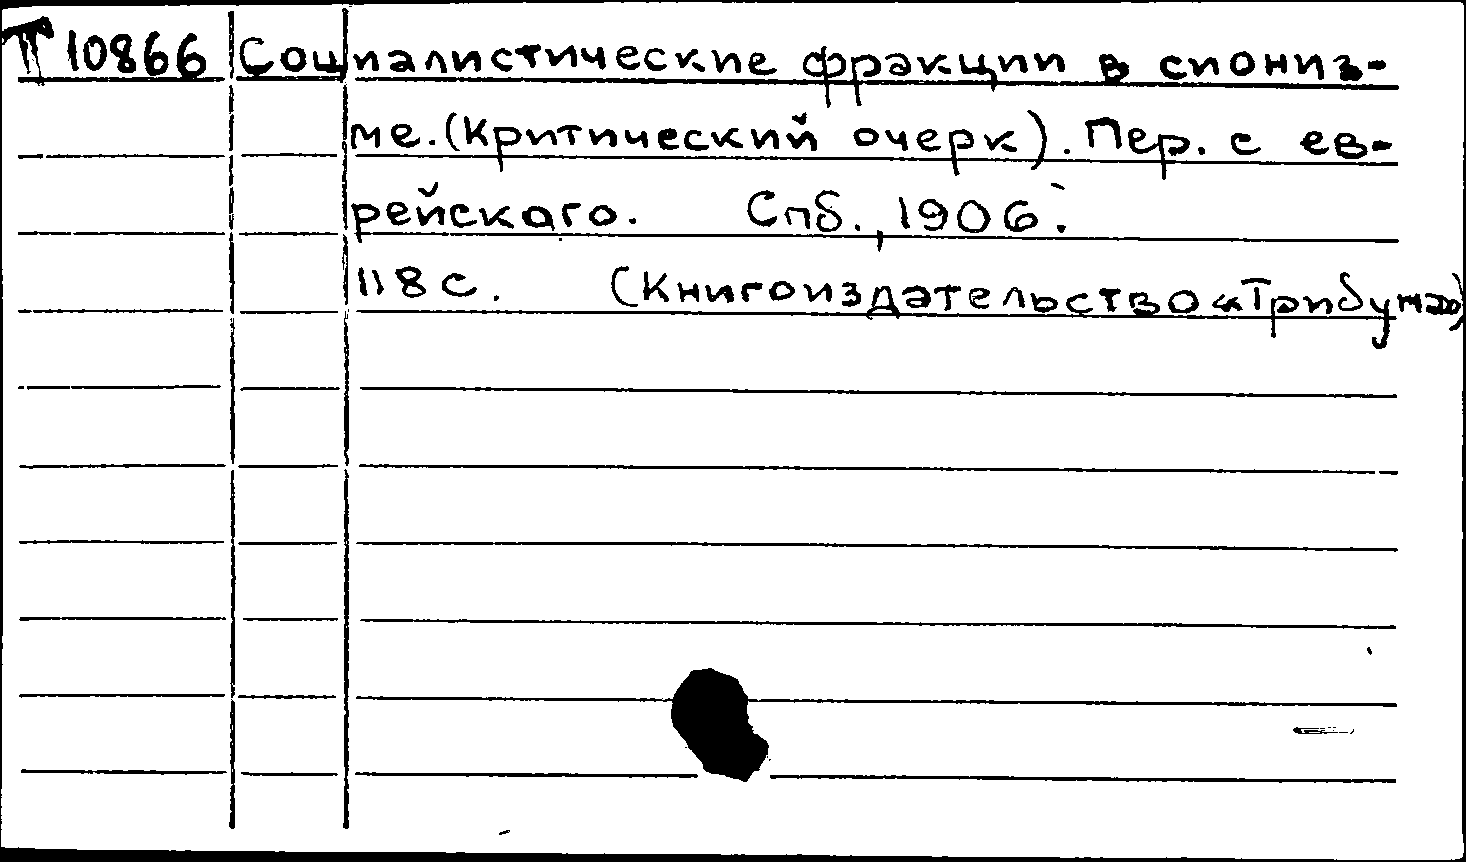 Т 10866 Социалистические фракции в сиониз-
ме. (Критический очерк). Пер. с ев-
рейского. Спб., 1906.
118 с. (Книгоиздательство «Трибуна»)